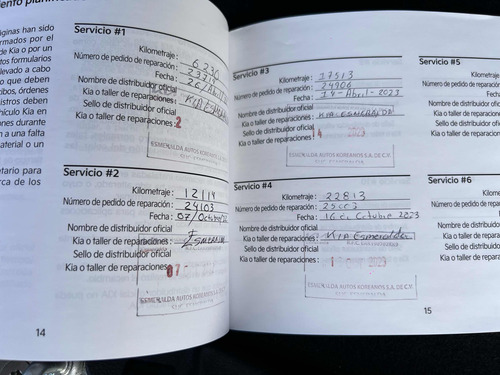 áginas han sido
rmados por el
de Kia o por un
tos formularios
levado a cabo
o que deben
ibos, órdenes
istros deben
hículo Kia en
ones durante
n a una falta
aterial o un
etario para
rca de los
14
Servicio #1
Kilometraje: 6,230
Número de pedido de reparación:
Fecha:
Nombre de distribuidor oficial
Kia o taller de reparaciones: KIA ESMERALDA
Sello de distribuidor oficial
Kia o taller de reparaciones: 2
ESMERALDA AUTOS KOREANOS
Servicio #2
Kilometraje: 12114
Número de pedido de reparación: 24103
Fecha: 07/Octubre/
Nombre de distribuidor oficial
Kia o taller de reparaciones:
Sello de distribuidor oficial
Kia o taller de reparaciones: 07
ESMERALDA AUTOS KOREANOS S.A. DE C.V.
Servicio #3
Kilometraje: 17513
Número de pedido de reparación: 24906
Fecha: 14-Abril-2023
Nombre de distribuidor oficial
Kia o taller de reparaciones: KIA ESMERALDA
Sello de distribuidor oficial
Kia o taller de reparaciones: 14 2023
ESMERALDA AUTOS KOREANOS S.A. DE C.V.
Servicio #4
Kilometraje: 22813
Número de pedido de reparación:
Fecha: 16 Octubre 2023
Nombre de distribuidor oficial
Kia o taller de reparaciones: KIA Esmeralda
Sello de distribuidor oficial
Kia o taller de reparaciones: 1 2023
ESMERALDA AUTOS KOREANOS S.A. DE C.V.
15
Servicio #5
Kilo
Número de pedido de rep
Nombre de distribuido
Kia o taller de repar
Sello de distribuid
Kia o taller de repa
Servicio #6
K
Número de pedido de
Nombre de distrib
Kia o taller de re
Sello de distrib
Kia o taller de